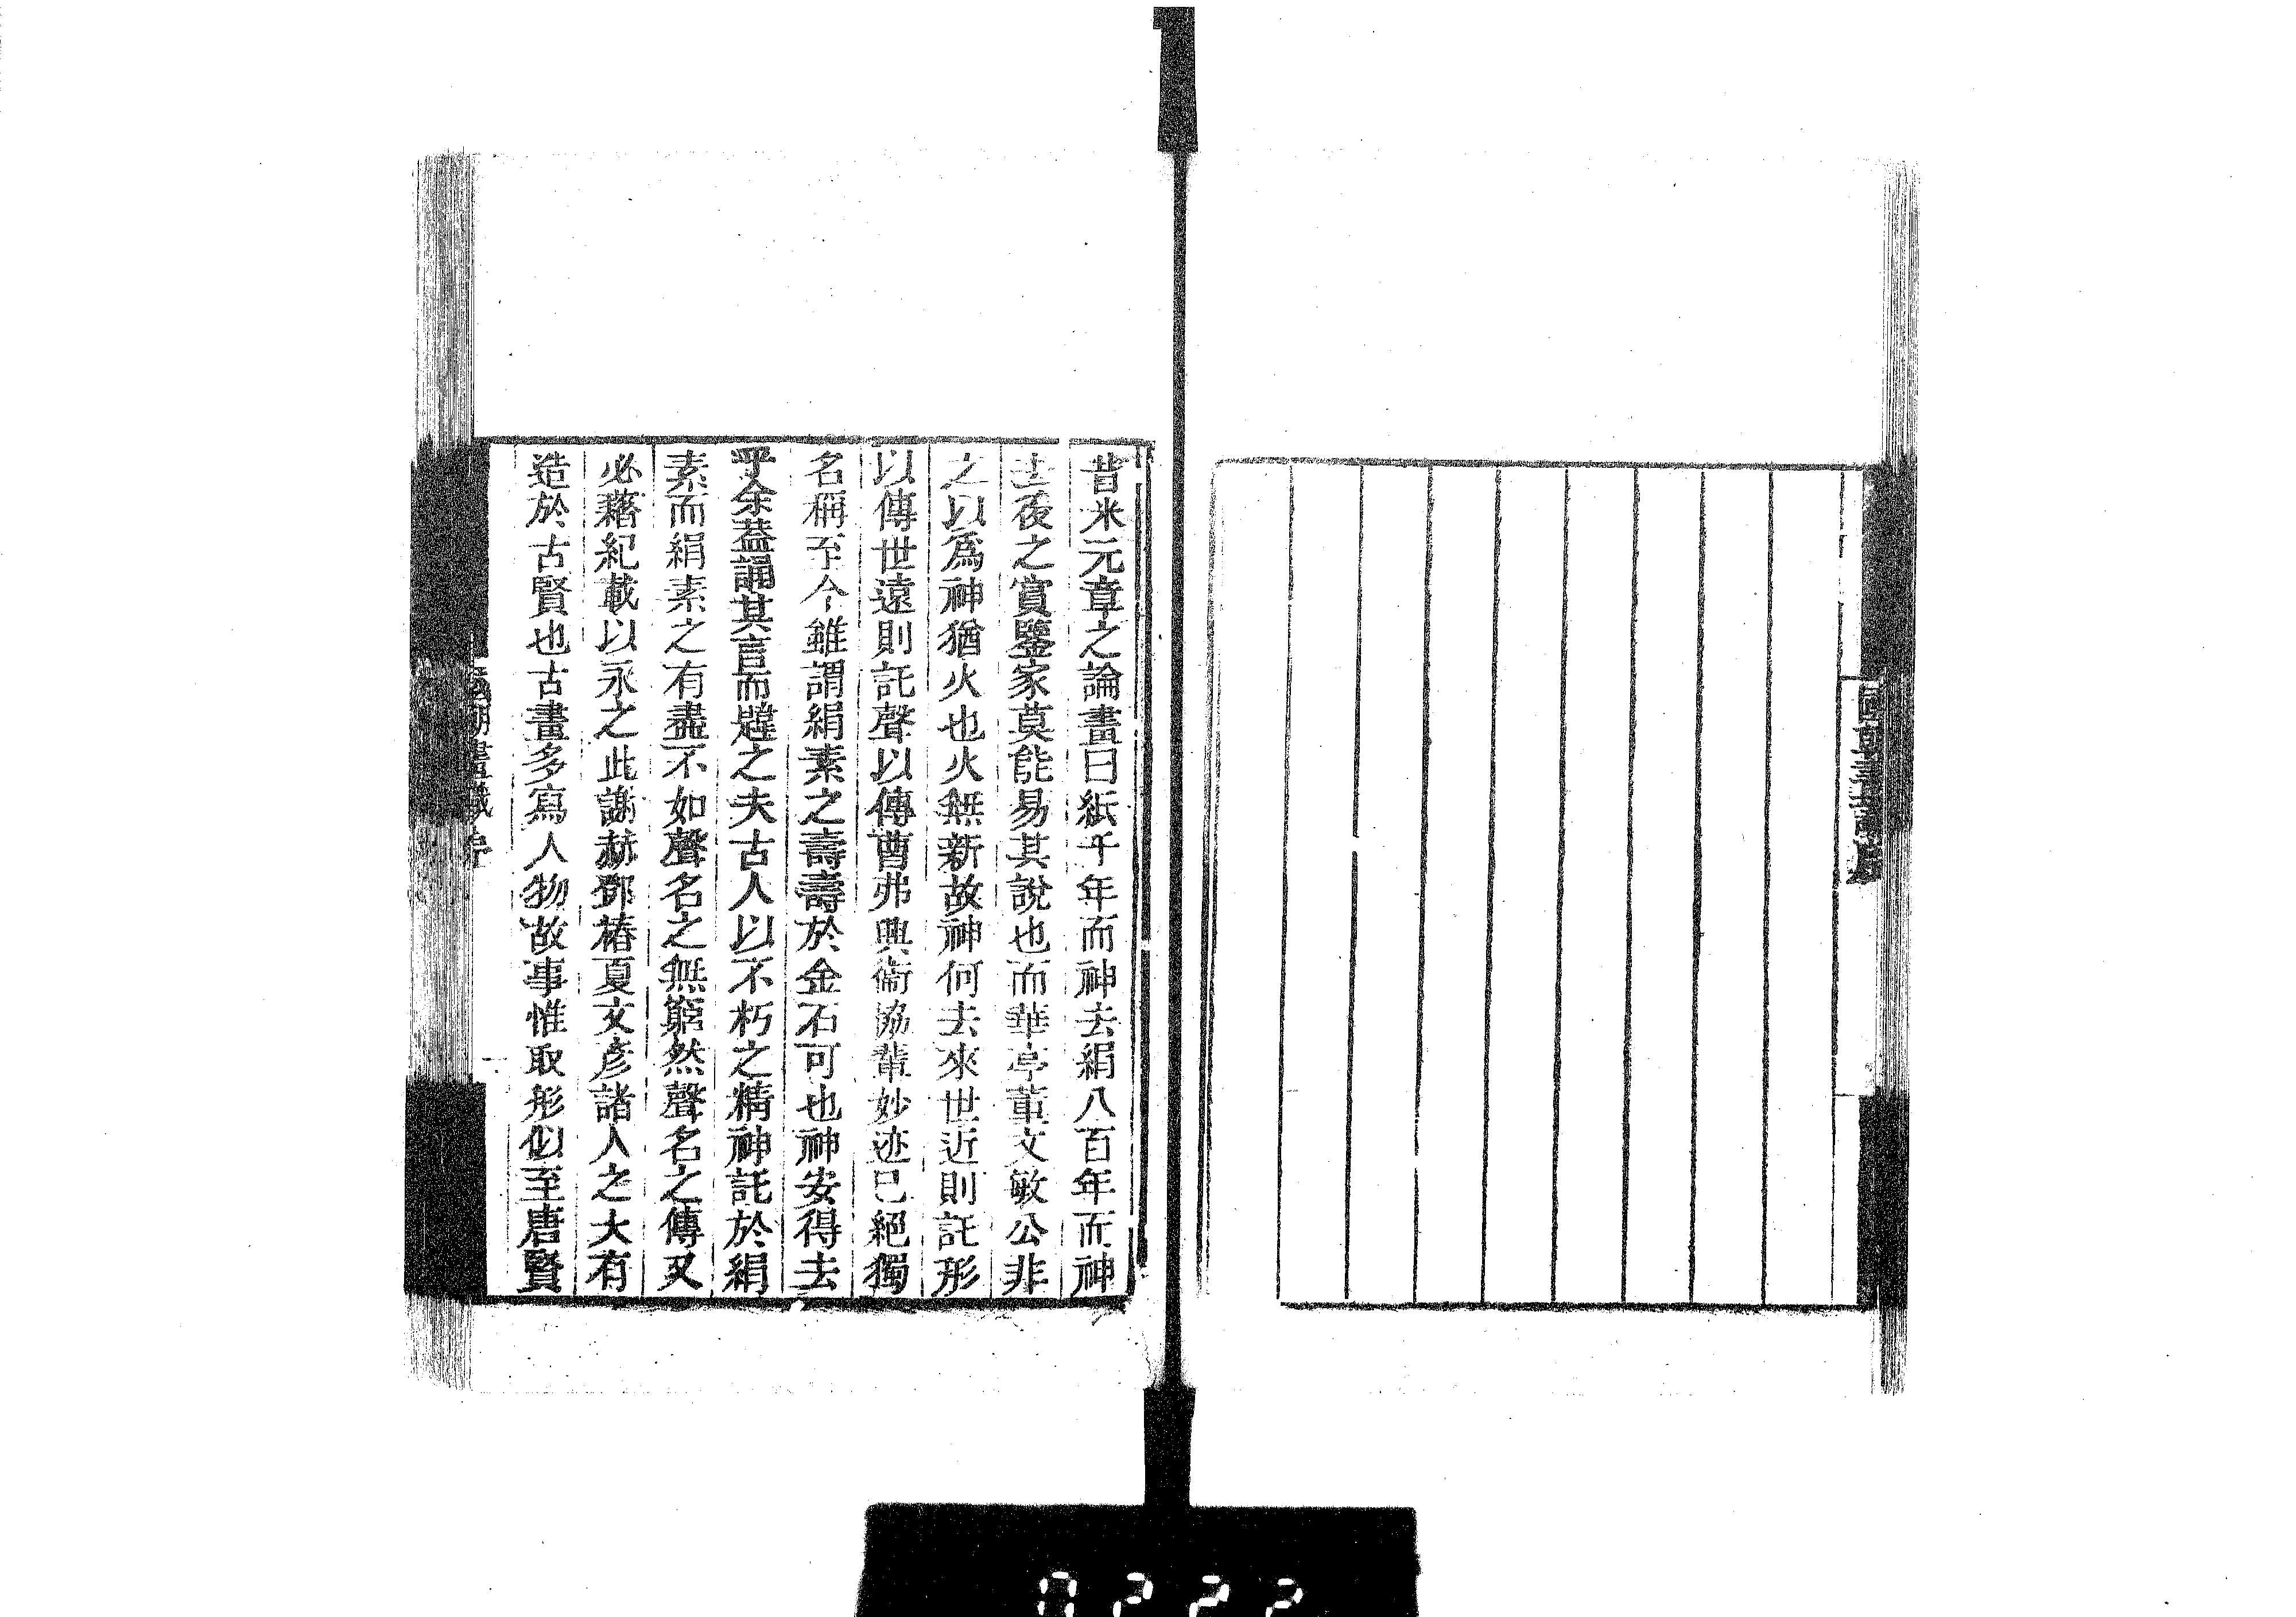 昔米元章之論畫曰紙千年而神去絹八百年而神
去後之賞鑒家莫能易其說也而華亭董文敏公非
之以爲神猶火也火無新故神何去來世近則託形
以傳世遠則託聲以傳曹弗興衞協輩妙迹已絕獨
名稱至今雖謂絹素之壽壽於金石可也神安得去
乎余葢誦其言而韙之夫古人以不朽之精神託於絹
素而絹素之有盡不如聲名之無窮然聲名之傳又
必藉紀載以永之此謝赫鄧椿夏文彥諸人之大有
造於古賢也古畫多寫人物故事惟取形似至唐賢
國朝畫識序
一
0222